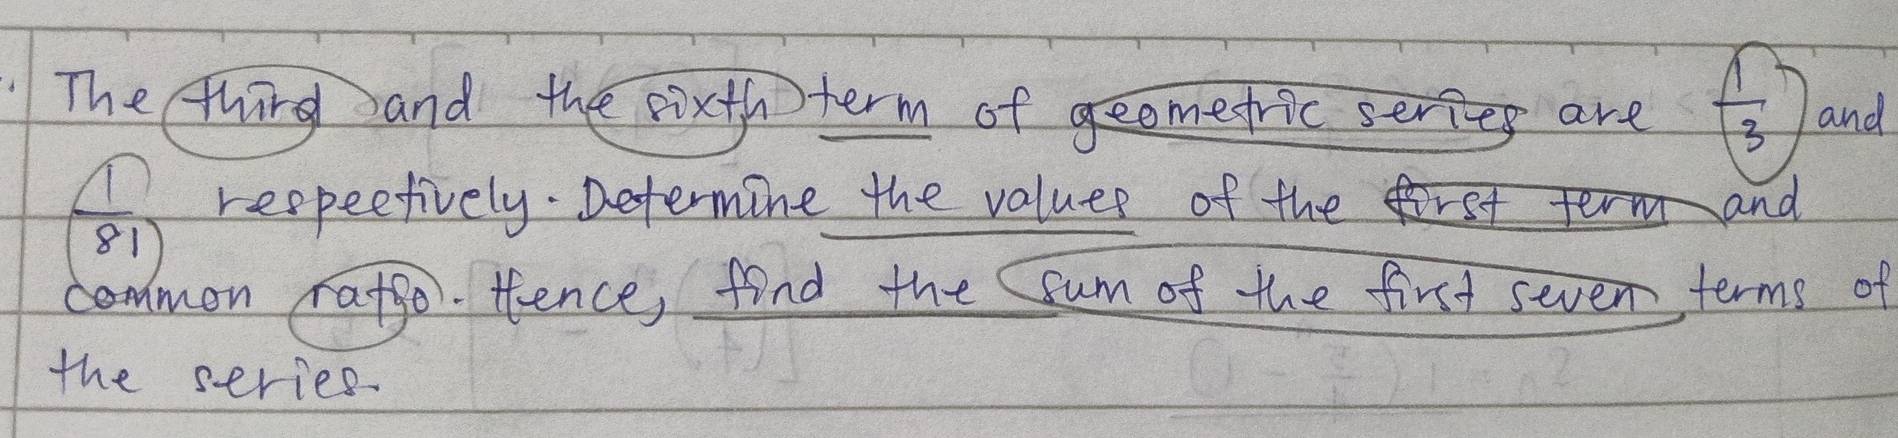 The third and the sixth term of geometric series are 1/3 and
1/81 respectively. Determine the values of the first term and
common ratio. Hence, find the sum of the first seven terms of
the series.